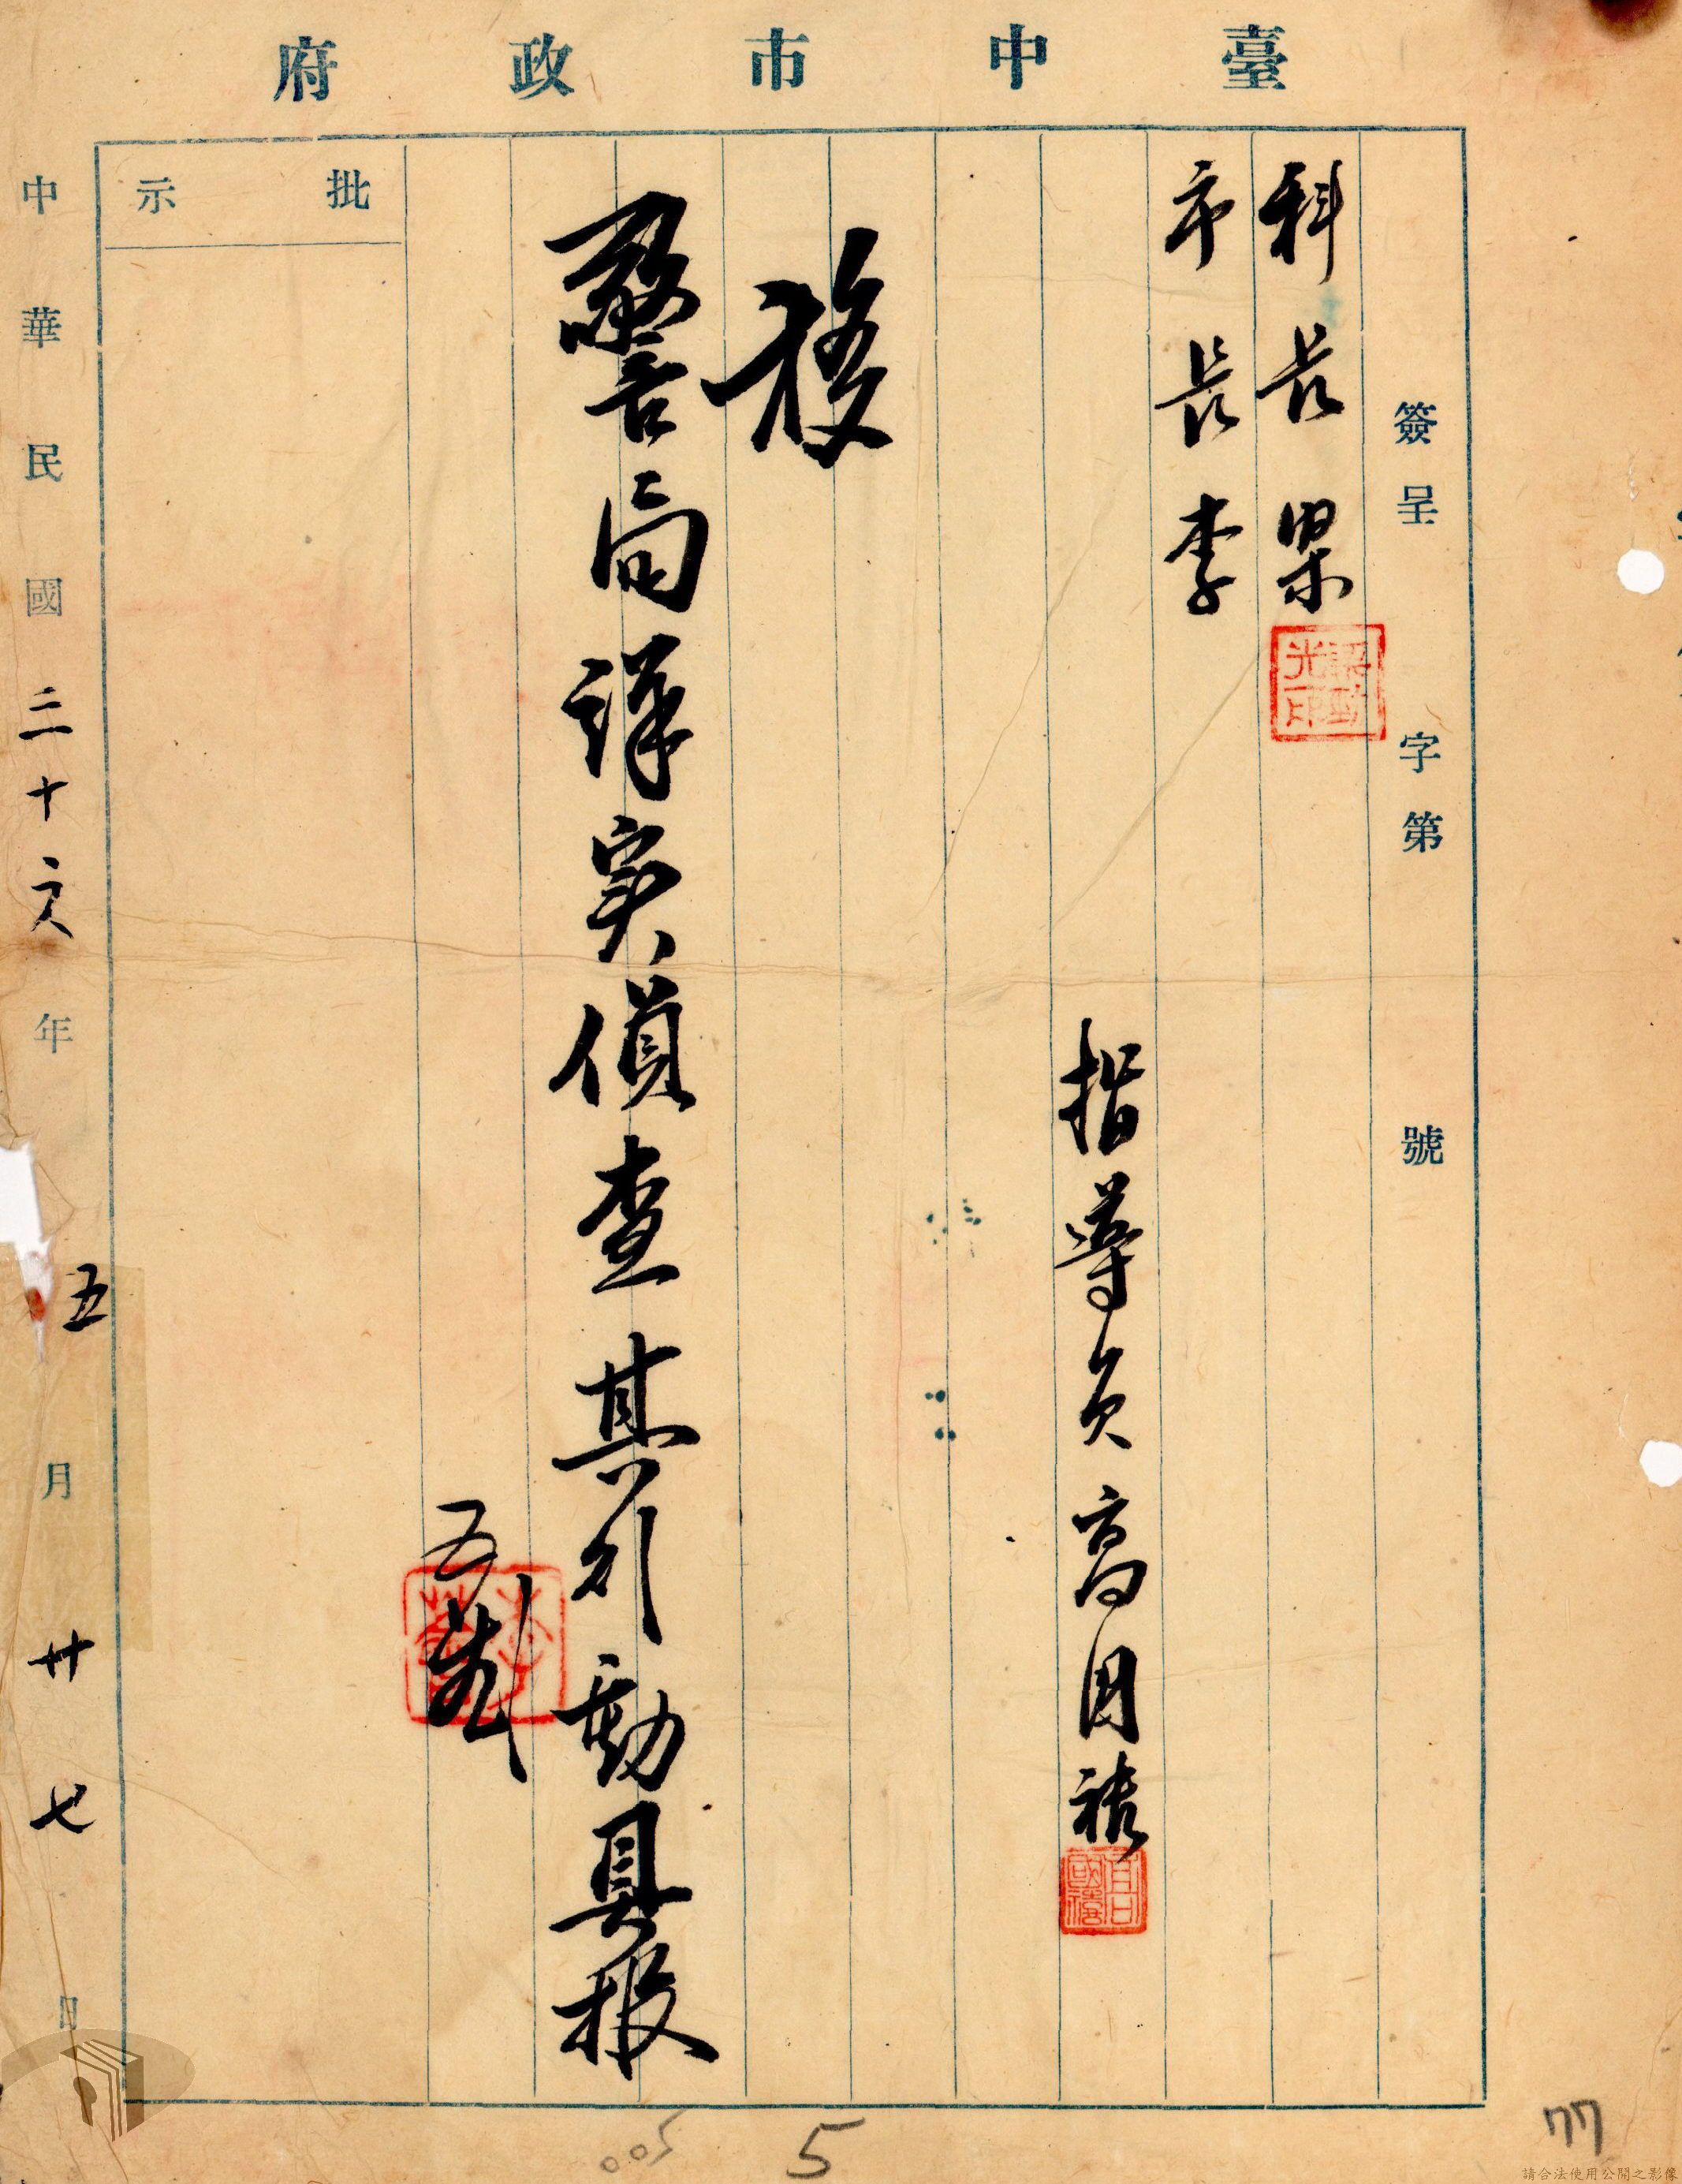 臺中市政府
簽呈 字第 號
科長梁
市長李
指導員高国禧
移
警局詳实偵查其行動具报
五
批示
中華民國三十六年五月廿七日
5
77
005
請合法使用公開之影像